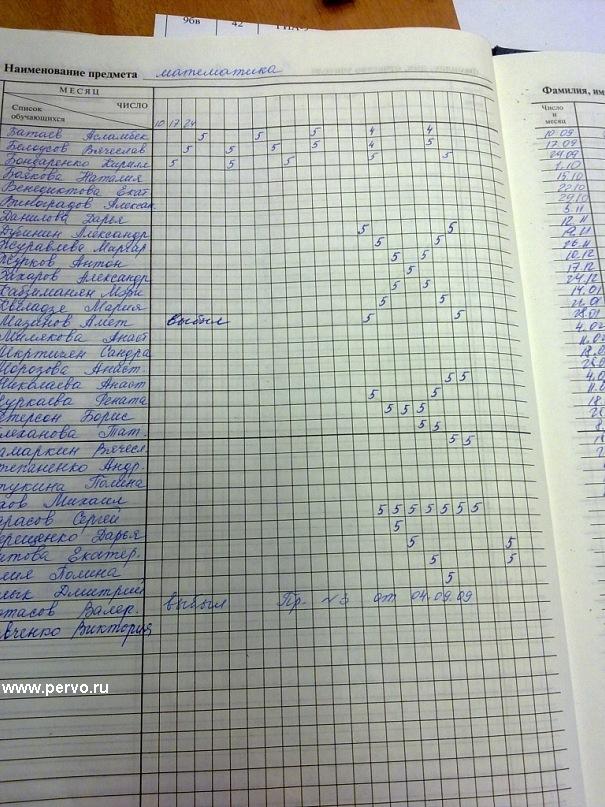 96в 42 ГИА-9
Наименование предмета математика
Фамилия, им
МЕСЯЦ
ЧИСЛО
Список
обучающихся
10 17 24
Число
и
месяц
Батаев Асламбек 5 5 5 4 4
Белоусов Вячеслав 5 5 5 5 4 5
Бондаренко Кирилл 5 5 5 5 5
Божкова Наталия
Венедиктова Екат
Виноградов Алексан
Данилова Дарья
Дубинин Александр 5 5
Журавлева Марвар 5 5
Жирков Антон 5 5
Захаров Александр 5
Кабзиманян Мэри 5 5
Квеладзе Мария 5 5
Мазанов Амет выбыл 5 5
Милякова Анаст
Мкртичян Сандра
Морозова Анаст.
Николаева Анаст 5 5
нуркаева Рената 5 5
етерсон Борис 5 5 5
леханова Тат. 5 5
амаркин Вячесл 5 5
тепаненко Андр.
тукина Полина
хов Михаил
арасов Сергей 5 5 5 5 5 5 5
ерещенко Дарья 5
итова Екатер. 5 5
мия Полина 5 5
лык Дмитрий 5
отасов Валер. выбыл Пр. №3 от 04.09.09
вченко Виктория
10.09
17.09
24.09
1.10
15.10
22.10
29.10
5.11
12.11
19.11
26.11
10.12
17.12
24.12
14.01
21.01
28.01
www.pervo.ru